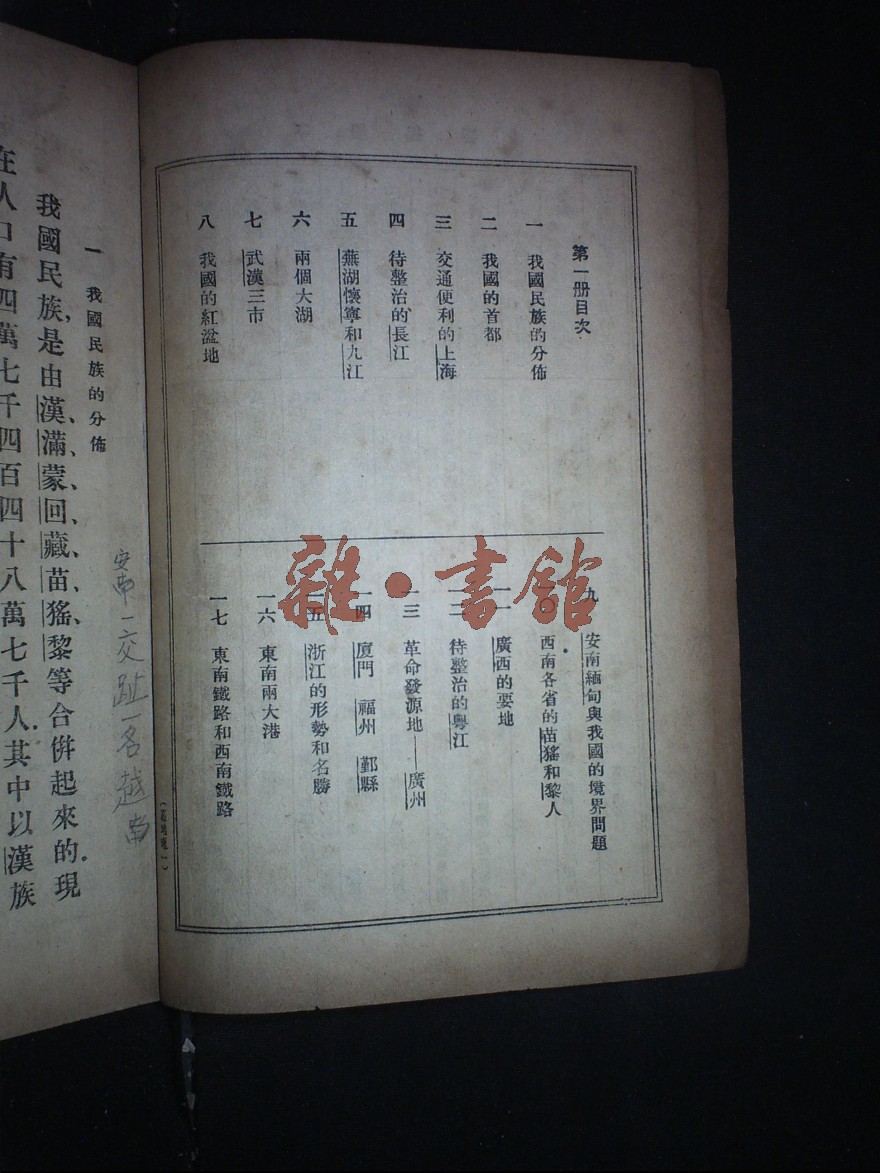 第一册目次
一 我國民族的分佈
二 我國的首都
三 交通便利的上海
四 待整治的長江
五 蕪湖懷寧和九江
六 兩個大湖
七 武漢三市
八 我國的紅盆地
九 安南緬甸與我國的境界問題
一〇 西南各省的苗猺和黎人
一一 廣西的要地
一二 待整治的粵江
一三 革命發源地——廣州
一四 廈門 福州 鄞縣
一五 浙江的形勢和名勝
一六 東南兩大港
一七 東南鐵路和西南鐵路
雜·書館
安南一交趾一名越南
一 我國民族的分佈
我國民族,是由漢、滿、蒙、回、藏、苗、猺、黎等合倂起來的.現
在人口有四萬七千四百四十八萬七千人.其中以漢族